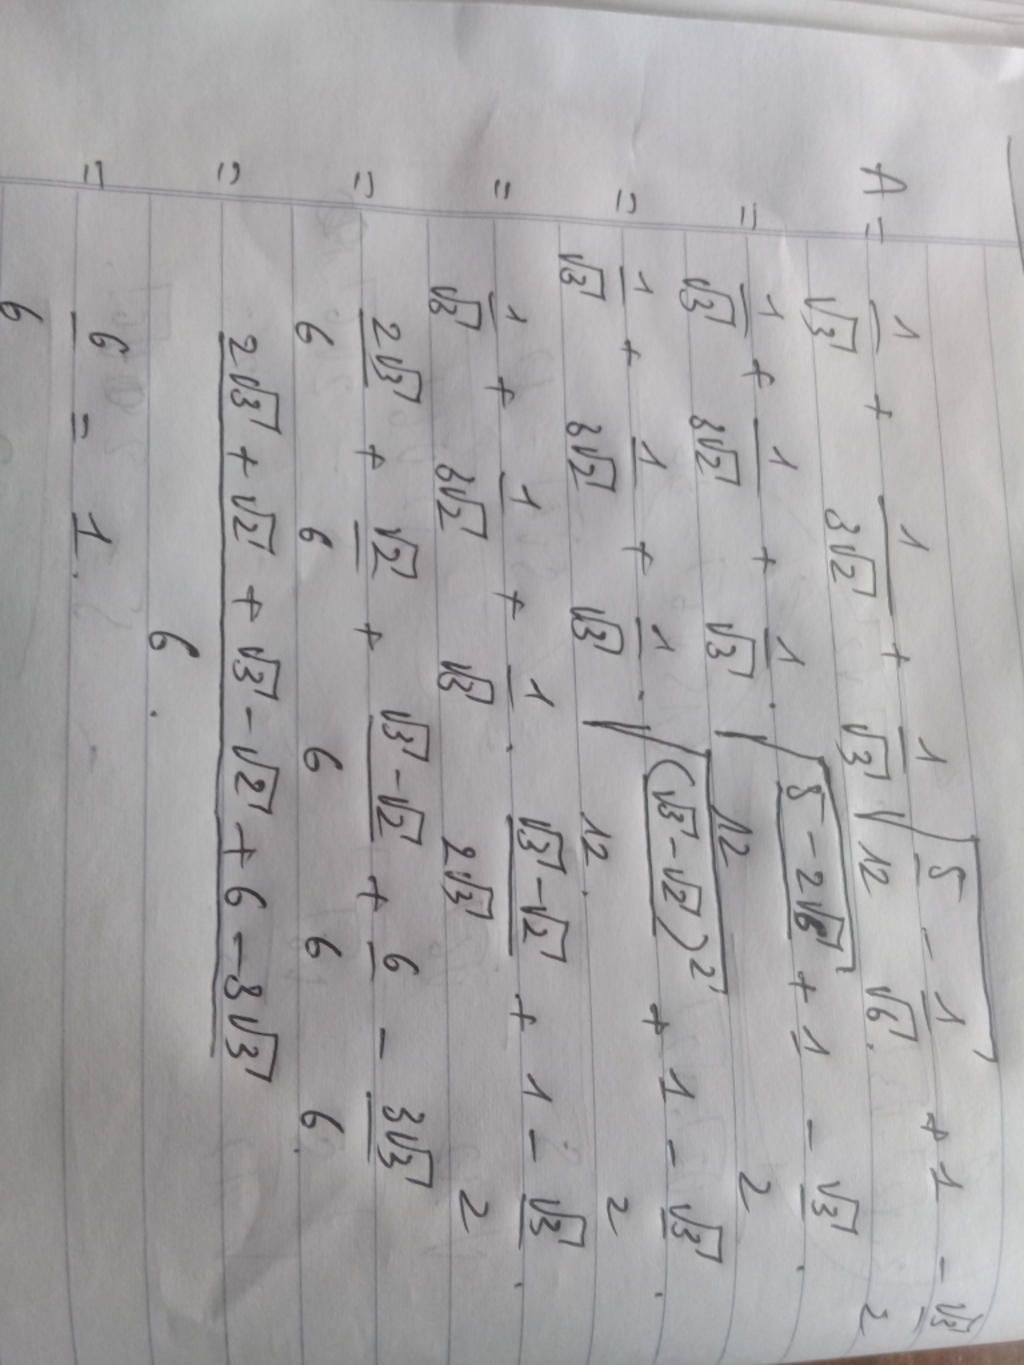 A = 1/√3 + 1/3√2 + 1/√3 √(5/12 - 1/√6) + 1 - √3/2
= 1/√3 + 1/3√2 + 1/√3 . √((5 - 2√6)/12) + 1 - √3/2 .
= 1/√3 + 1/3√2 + 1/√3 . √((√3 - √2)²/12) + 1 - √3/2 .
= 1/√3 + 1/3√2 + 1/√3 . (√3 - √2)/2√3 + 1 - √3/2 .
= 2√3/6 + √2/6 + (√3 - √2)/6 + 6/6 - 3√3/6 .
= (2√3 + √2 + √3 - √2 + 6 - 3√3)/6 .
= 6/6 = 1 .